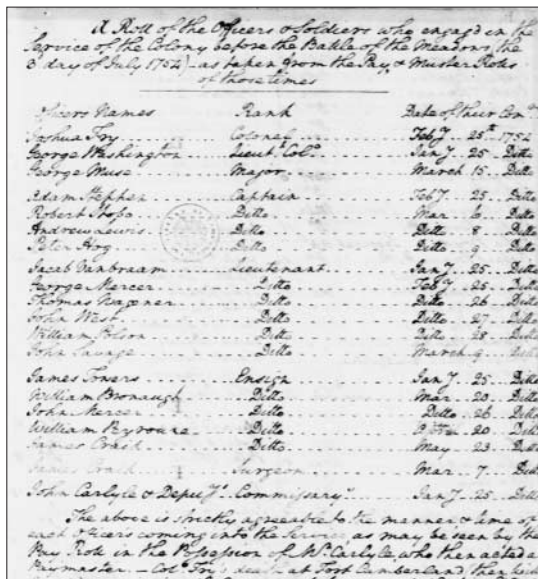 A Roll of the Officers & Soldiers who engaged in the
Service of the Colony before the Battle of the Meadows (the
3 day of July 1754) - as taken from the Pay, & Muster Rolls
of those times
Officers Names Rank Date of their Com.ⁿ
Joshua Fry Colonel Feby 25th 1754
George Washington Lieut.t Col.o Jany 25 Ditto
George Muse Major March 15 Ditto
Adam Stephen Captain Feby 25 Ditto
Robert Stobo Ditto Mar 6 Ditto
Andrew Lewis Ditto Ditto 8 Ditto
Peter Hog Ditto Ditto 9 Ditto
Jacob Vanbraam Lieutenant Jany 25 Ditto
George Mercer Ditto Feby 25 Ditto
Thomas Wagener Ditto Ditto 26 Ditto
John West Ditto Ditto 27 Ditto
William Polson Ditto Ditto 28 Ditto
John Savage Ditto March 9 Ditto
James Towers Ensign Jany 25 Ditto
William Bronaugh Ditto Mar 20 Ditto
John Mercer Ditto Ditto 26 Ditto
William Peyroune Ditto 20 Ditto
James Craik Ditto May 23 Ditto
James Craik Surgeon Mar 7 Ditto
John Carlyle & Deputys Commissarys Jany 25 Ditto
The above is strictly agreeable to the manner & time of
each Officers coming into the Service, as may be seen by the
Pay Roll in the Possession of Mr Carlyle who then acted as
Paymaster. - Colo Fry's death at Fort Cumberland then